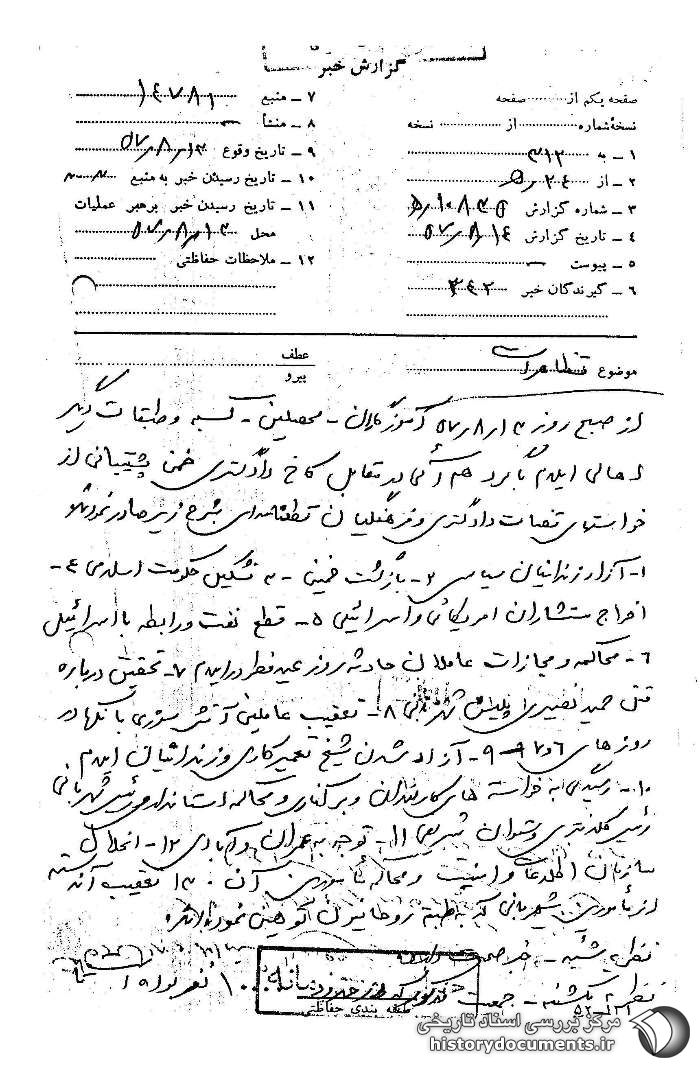 گزارش خبر
صفحه یکم از ........ صفحه
نسخهٔ شماره ........ از ........ نسخه
۱ ـ به ۳۱۲
۲ ـ از ۲۴ ر ۵
۳ ـ شماره گزارش
۴ ـ تاریخ گزارش ۱۴ر۸ر۵۷
۵ ـ پیوست ـ
۶ ـ گیرندگان خبر ۳۴۲
۷ ـ منبع ۱۴۷۸۱
۸ ـ منشأ ـ
۹ ـ تاریخ وقوع ۱۳ر۸ر۵۷
۱۰ ـ تاریخ رسیدن خبر به منبع
۱۱ ـ تاریخ رسیدن خبر برهبر عملیات
محل ۱۳ر۸ر۵۷
۱۲ ـ ملاحظات حفاظتی
موضوع تظاهرات
عطف
پیرو
از صبح روز ۱۳ر۸ر۵۷ آموزگاران - محصلین - کسبه و طبقات دیگر
اهالی ایلام با گرد هم آئی در مقابل کاخ دادگستری ضمن پشتیبانی از
خواستهای قضات دادگستری و فرهنگیان قطعنامه‌ای بشرح زیر صادر نمودند
۱- آزاد زندانیان سیاسی ۲- بازگشت خمینی - ۳ تشکیل حکومت اسلامی ۴-
اخراج مستشاران امریکائی و اسرائیلی ۵- قطع نفت و رابطه با اسرائیل
۶- محاکمه و مجازات عاملان حادثه روز عید فطر در ایلام ۷- تحقیق درباره
قتل حمید نصیری پلیس شهربانی ۸- تعقیب عاملین آتش سوزی بانکها در
روز های ۶ و ۷ ۹- آزاد شدن شیخ تعمیرکاری و زندانیان ایلام
۱۰- رسیدگی به خواسته های کارمندان و برکناری و محاکمه استاندار و رئیس شهربانی
رئیس کلانتری و ستوان شریفی ۱۱- توجه به عمران و آبادی ۱۲- انحلال
سازمان اطلاعات و امنیت و محاکمه مأمورین آن . ۱۳ تعقیب آن دسته
از مأمورین شهربانی که به طبقه روحانیون توهین نموده‌اند
نظریه شنبه - خبر صحت دارد
نظریه یکشنبه - جمعیت نفر بوده است
طبقه بندی حفاظتی
مرکز بررسی اسناد تاریخی
historydocuments.ir